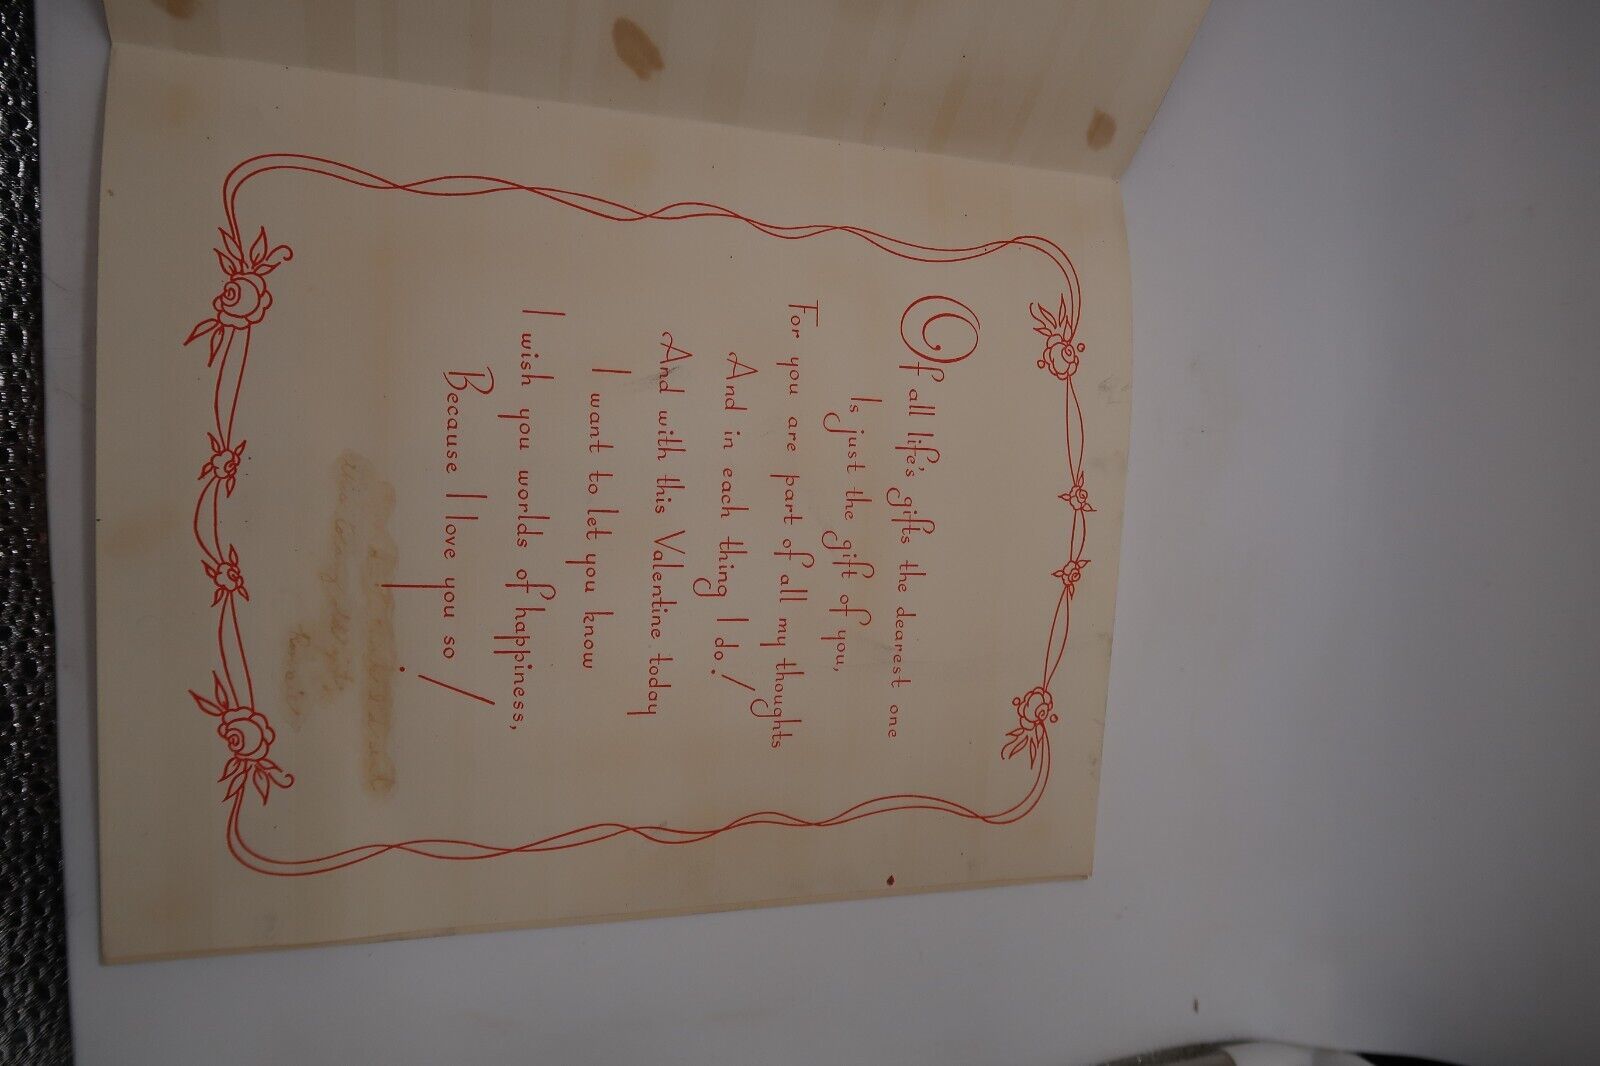 Of all life's gifts the dearest one
Is just the gift of you,
For you are part of all my thoughts
And in each thing I do!
And with this Valentine today
I want to let you know
I wish you worlds of happiness,
Because I love you so!